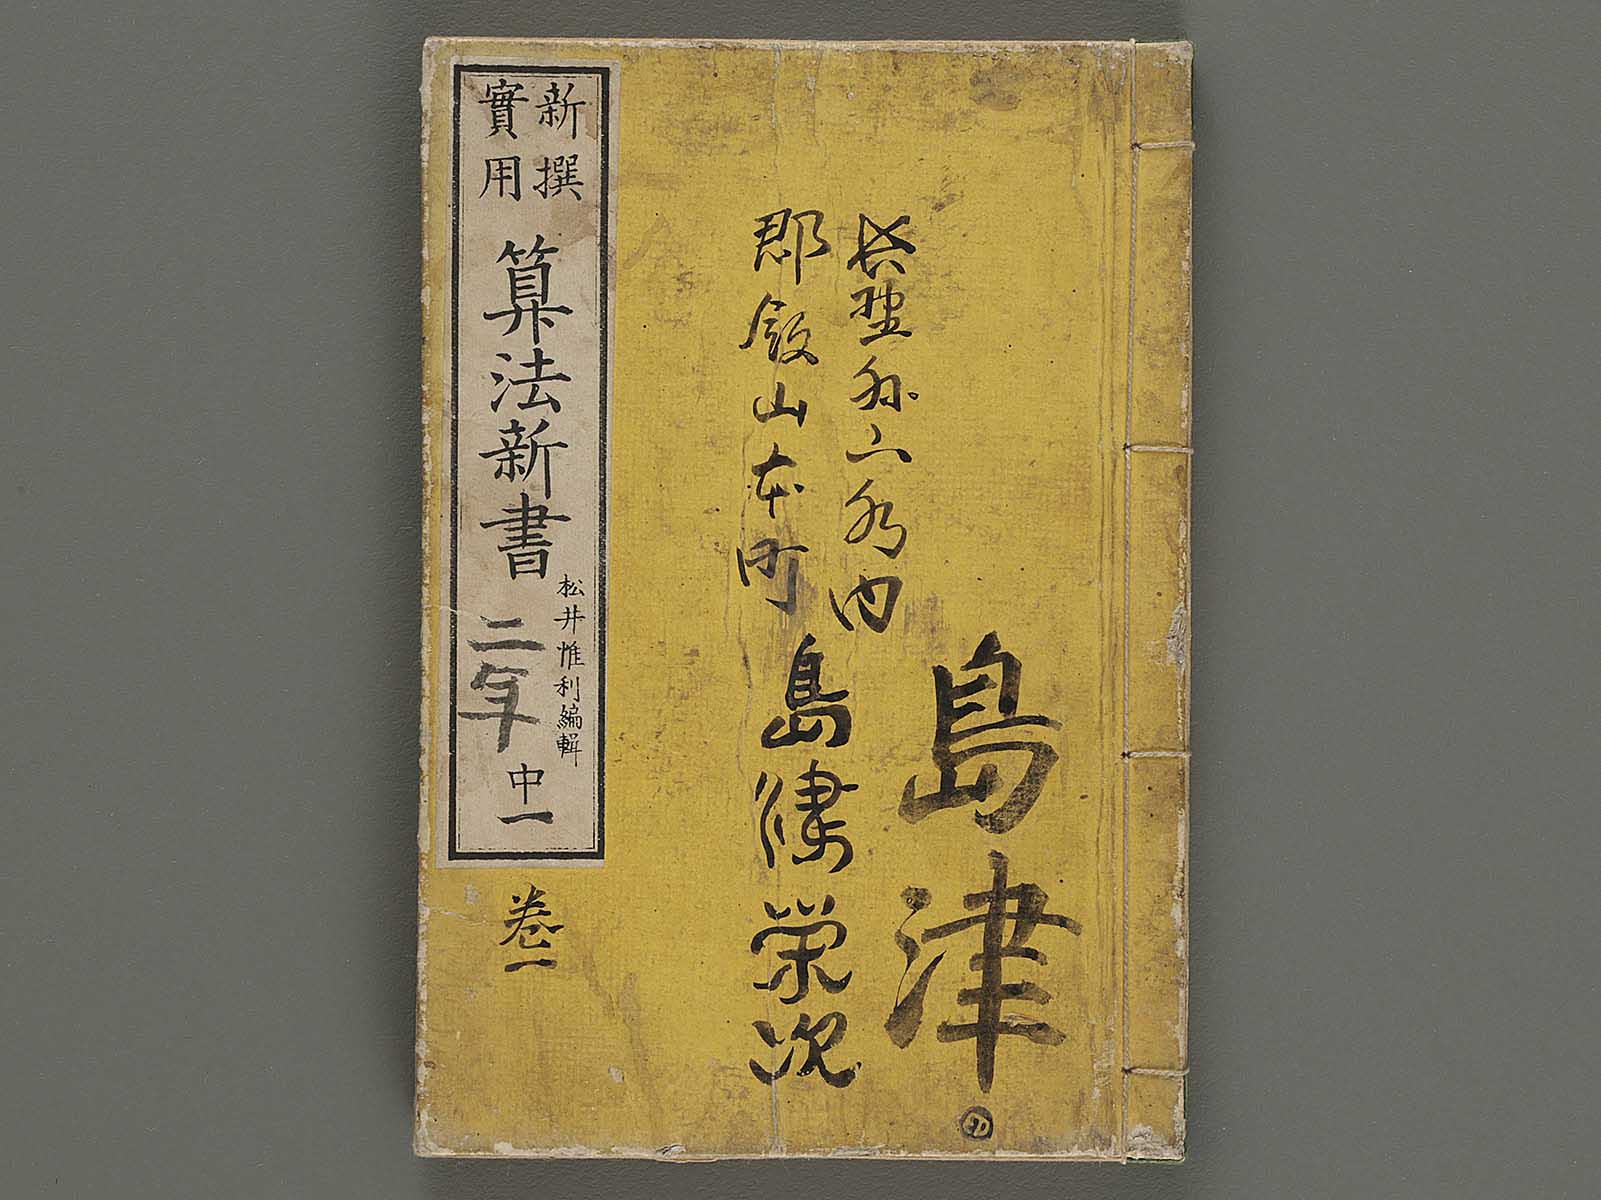 島津
長野県上水内
郡飯山本町
島津栄次
新撰
實用
算法新書
松井惟利編輯
二年
中一
巻一